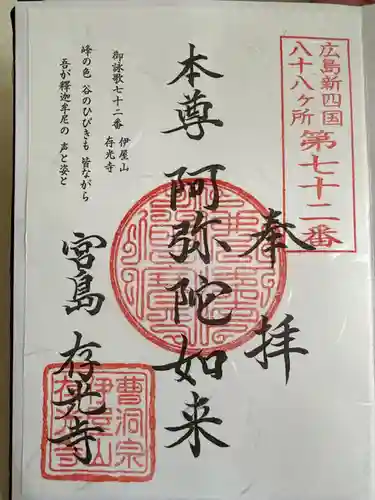 広島新四国
八十八ヶ所
第七十二番
奉拝
本尊 阿弥陀如来
宮島 存光寺
御詠歌七十二番 伊屋山
存光寺
峰の色 谷のひびきも 皆ながら
吾が釋迦牟尼の 声と姿と
曹洞宗
伊屋山
存光寺